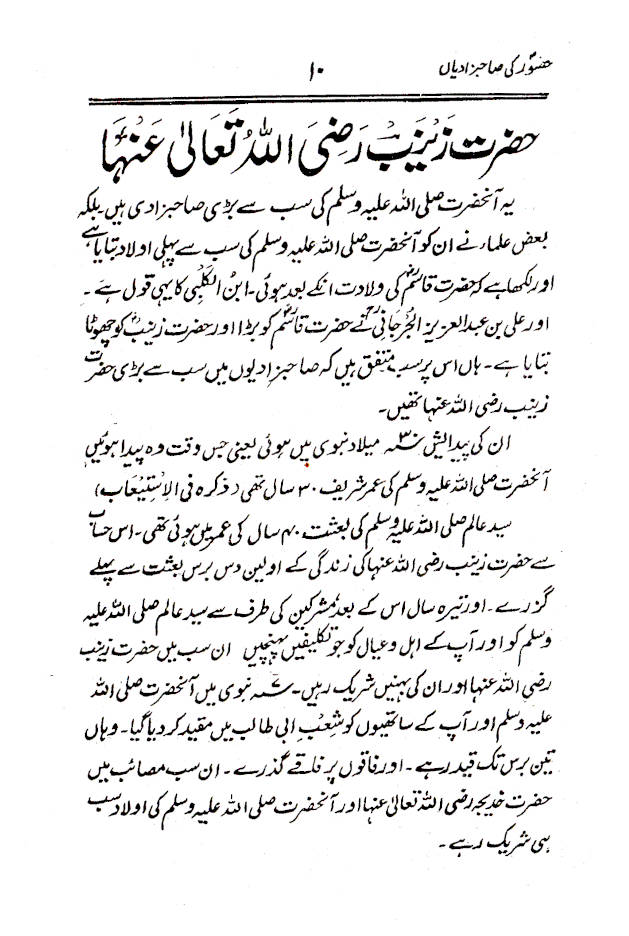 حضورؐ کی صاحبزادیاں
۱۰
حضرت زَیْنَبْ رَضِیَ اللہُ تَعَالیٰ عَنْہَا
یہ آنحضرت صلی اللہ علیہ وسلم کی سب سے بڑی صاحبزادی ہیں۔ بلکہ
بعض علماء نے ان کو آنحضرت صلی اللہ علیہ وسلم کی سب سے پہلی اولاد بتایا ہے
اور لکھا ہے کہ حضرت قاسمؓ کی ولادت انکے بعد ہوئی۔ ابنُ الکَلْبِی کا یہی قول ہے۔
اور علی بن عبدالعزیز الجُرجانیؒ نے حضرت قاسمؓ کو بڑا اور حضرت زینبؓ کو چھوٹا
بتایا ہے۔ ہاں اس پر سب متفق ہیں کہ صاحبزادیوں میں سب سے بڑی حضرت
زینب رضی اللہ عنہا تھیں۔
ان کی پیدائش ۳۰؁ میلاد نبوی میں ہوئی یعنی جس وقت وہ پیدا ہوئیں
آنحضرت صلی اللہ علیہ وسلم کی عمر شریف ۳۰ سال تھی (ذکرہ فی الاِسْتِیْعَاب)
سید عالم صلی اللہ علیہ وسلم کی بعثت ۴۰ سال کی عمر میں ہوئی تھی۔ اس حساب
سے حضرت زینب رضی اللہ عنہا کی زندگی کے اولین دس برس بعثت سے پہلے
گزرے۔ اور تیرہ سال اس کے بعد مُشرکین کی طرف سے سید عالم صلی اللہ علیہ
وسلم کو اور آپ کے اہل و عیال کو جو تکلیفیں پہنچیں ان سب میں حضرت زینب
رضی اللہ عنہا اور ان کی بہنیں شریک رہیں۔ ۷؁ نبوی میں آنحضرت صلی اللہ
علیہ وسلم اور آپ کے ساتھیوں کو شِعْبِ ابی طالب میں مقید کر دیا گیا۔ وہاں
تین برس تک قید رہے۔ اور فاقوں پر فاقے گذرے۔ ان سب مصائب میں
حضرت خدیجہ رضی اللہ تعالیٰ عنہا اور آنحضرت صلی اللہ علیہ وسلم کی اولاد سب
ہی شریک رہے۔